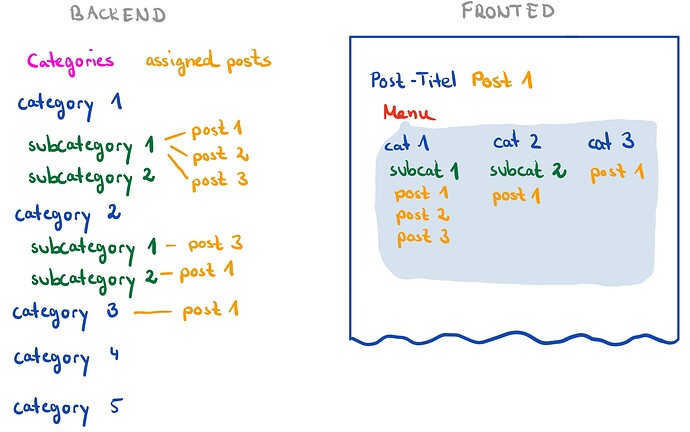 BACKEND
Categories assigned posts
category 1
subcategory 1
post 1
post 2
post 3
subcategory 2
category 2
subcategory 1 post 3
subcategory 2 post 1
category 3 post 1
category 4
category 5
FRONTED
Post-Titel Post 1
Menu
cat 1 cat 2 cat 3
subcat 1 subcat 2 post 1
post 1 post 1
post 2
post 3